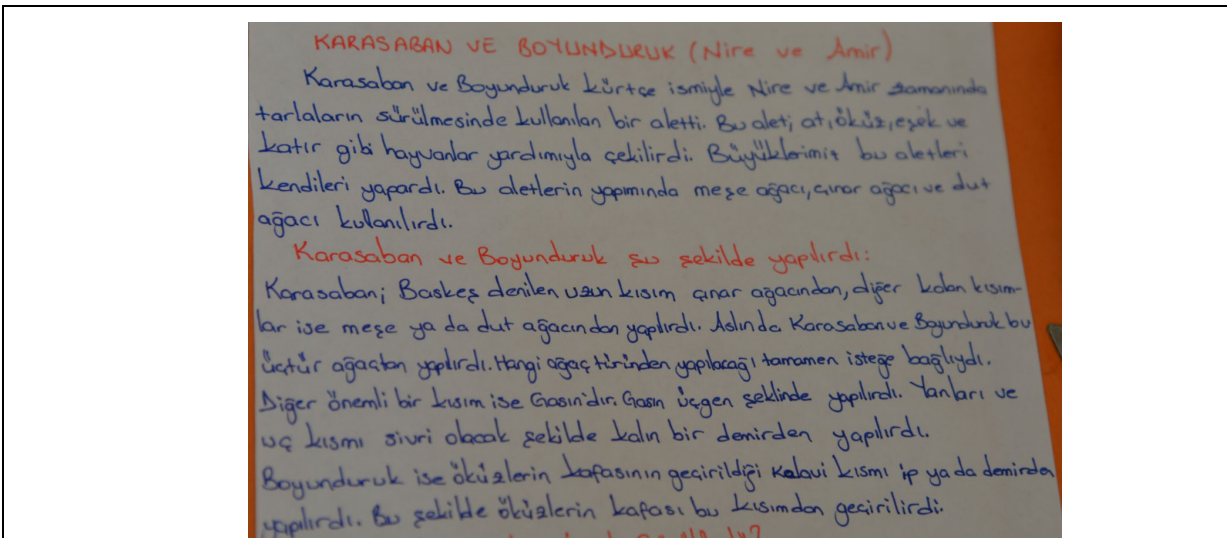 KARASABAN VE BOYUNDURUK (Nire ve Amir)
Karasaban ve Boyunduruk kürtçe ismiyle Nire ve Amir zamanında
tarlaların sürülmesinde kullanılan bir aletti. Bu alet; at, öküz, eşek ve
katır gibi hayvanlar yardımıyla çekilirdi. Büyüklerimiz bu aletleri
kendileri yapardı. Bu aletlerin yapımında meşe ağacı, çınar ağacı ve dut
ağacı kullanılırdı.
Karasaban ve Boyunduruk şu şekilde yapılırdı:
Karasaban; Baskeş denilen uzun kısım çınar ağacından, diğer kalan kısım-
lar ise meşe ya da dut ağacından yapılırdı. Aslında Karasaban ve Boyunduruk bu
üç tür ağaçtan yapılırdı. Hangi ağaç türinden yapılacağı tamamen isteğe bağlıydı.
Diğer önemli bir kısım ise Gasın'dır. Gasın üçgen şeklinde yapılırdı. Yanları ve
uç kısmı sivri olacak şekilde kalın bir demirden yapılırdı.
Boyunduruk ise öküzlerin kafasının geçirildiği Kelavi kısmı ip ya da demirden
yapılırdı. Bu şekilde öküzlerin kafası bu kısımdan geçirilirdi.